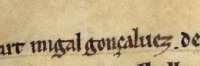 art migal gonçaluez. de